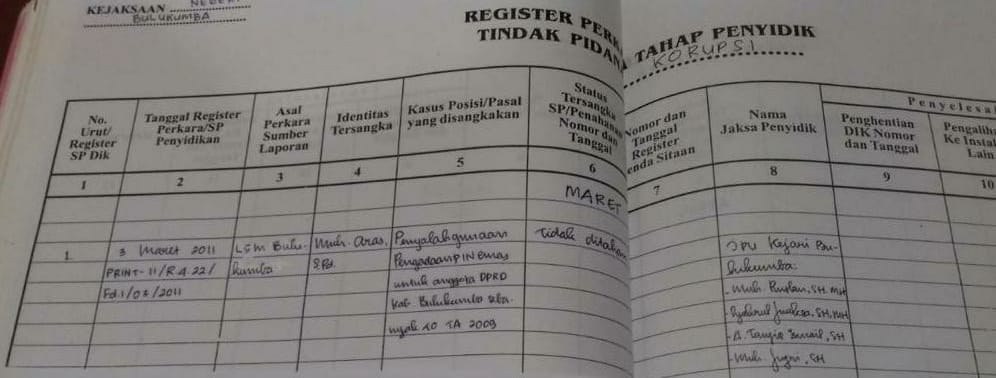 KEJAKSAAN NEGERI
BULUKUMBA
REGISTER PERK
TINDAK PIDANA
TAHAP PENYIDIK
KORUPSI
No. Urut/ Register SP Dik
Tanggal Register Perkara/SP Penyidikan
Asal Perkara Sumber Laporan
Identitas Tersangka
Kasus Posisi/Pasal yang disangkakan
Status Tersangka SP/Penahanan Nomor dan Tanggal
Nomor dan Tanggal Register enda Sitaan
Nama Jaksa Penyidik
Penyelesa
Penghentian DIK Nomor dan Tanggal
Pengaliha Ke Instal Lain
1 2 3 4 5 6 7 8 9 10
MARET
1. 3 Maret 2011 LSM Bulu- Muh. Aras, Penyalahgunaan tidak ditahan JPU Kejari Bu-
PRINT-11/R.4.22/ kumba S.Pd. Pengadaan PIN emas lukumba:
Fd.1/03/2011 untuk anggota DPRD - Muh. Ruslan, SH. MH
Kab. Bulukumba seba- SH, MH
nyak 40 TA 2009 - A. SH
- Muh. SH